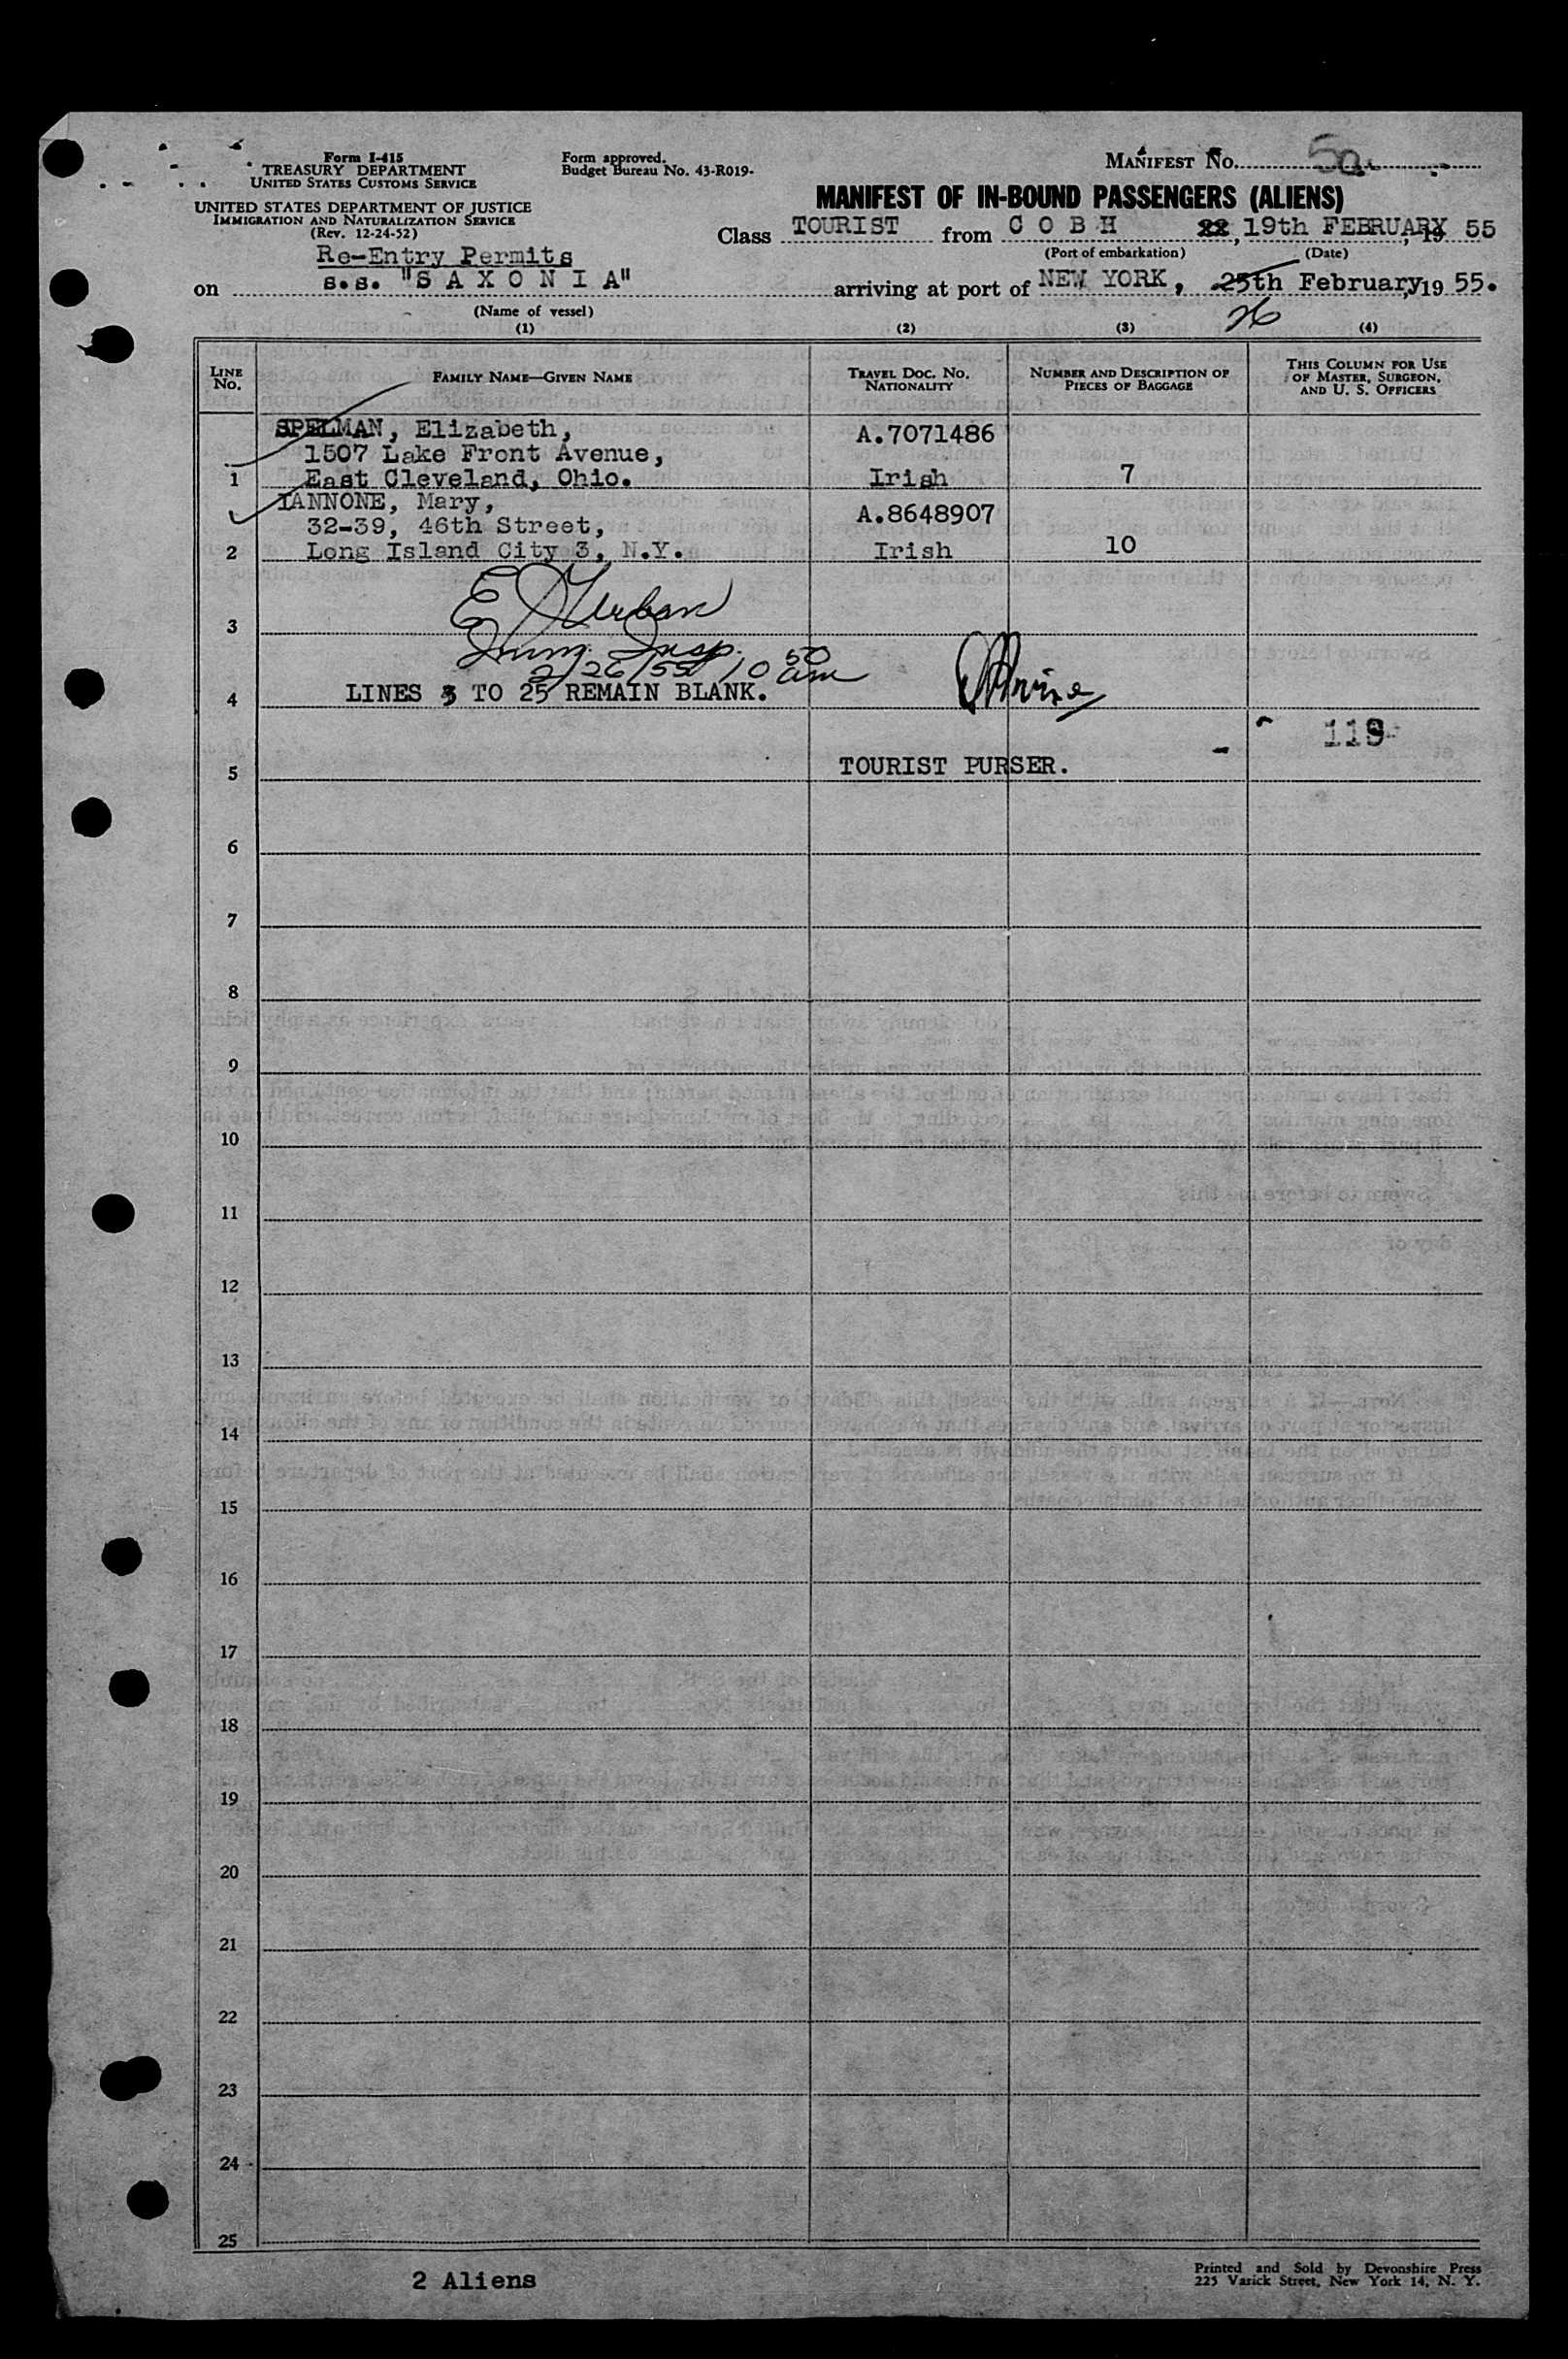 Form I-415
TREASURY DEPARTMENT
UNITED STATES CUSTOMS SERVICE
UNITED STATES DEPARTMENT OF JUSTICE
IMMIGRATION AND NATURALIZATION SERVICE
(Rev. 12-24-52)
Form approved.
Budget Bureau No. 43-R019-
MANIFEST NO. 5a
MANIFEST OF IN-BOUND PASSENGERS (ALIENS)
Class TOURIST from C O B H, 19th FEBRUARY, 19 55
(Port of embarkation) (Date)
Re-Entry Permits
on s.s. "S A X O N I A" arriving at port of NEW YORK, 25th February, 19 55.
26
(Name of vessel)
(1) (2) (3) (4)
LINE NO. FAMILY NAME—GIVEN NAME TRAVEL DOC. NO. NATIONALITY NUMBER AND DESCRIPTION OF PIECES OF BAGGAGE THIS COLUMN FOR USE OF MASTER, SURGEON, AND U. S. OFFICERS
SPELMAN, Elizabeth, A.7071486
1507 Lake Front Avenue,
1 East Cleveland, Ohio. Irish 7
IANNONE, Mary, A.8648907
32-39, 46th Street,
2 Long Island City 3, N.Y. Irish 10
E Urban
3
Imm. Insp.
2/26/55 10 50 am
4 LINES 3 TO 25 REMAIN BLANK.
119
5 TOURIST PURSER.
6
7
8
9
10
11
12
13
14
15
16
17
18
19
20
21
22
23
24
25
2 Aliens
Printed and Sold by Devonshire Press
225 Varick Street, New York 14, N. Y.